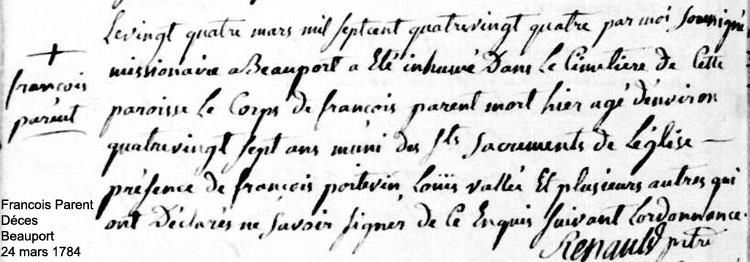 Le vingt quatre mars mil sept cent quatrevingt quatre par moi soussigné
missionaire a Beauport a Eté inhumé Dans Le Cimetiere de Cette
paroisse Le Corps de françois parent mort hier agé d'environ
quatrevingt sept ans muni des Sts Sacrements de L'église —
présence de françois poitevin Loüis vallée Et plusieurs autres qui
ont Déclarés ne sçavoir signer de Ce Enquis suivant Lordonnance.
Renauld ptre
+
françois
parent
Francois Parent
Déces
Beauport
24 mars 1784